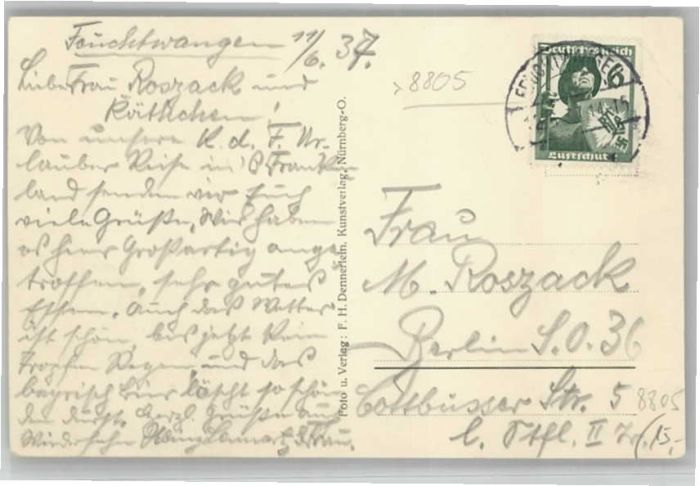 Feuchtwangen 11/6. 37.
Liebe Frau Roszack und
Käthchen!
Von unserer K. d. F. Ur-
lauber Reise in's Franken-
land senden wir Euch
viele Grüße, Wir haben
es hier Großartig ange-
troffen, sehr gutes
Essen. Auch das Wetter
ist schön, bis jetzt kein
Tropfen Regen, und das
bayrisch Bier löscht so schön
den Durst. Herzl. Grüße auf
Wiedersehn u. Frau.
Foto u. Verlag: F. H. Dennerlein, Kunstverlag, Nürnberg-O.
> 8805
Deutsches Reich
6
Luftschutz
Frau
M. Roszack
Berlin S.O. 36
Cottbusser Str. 5
8805
l. Stfl. II Tr.
15,-